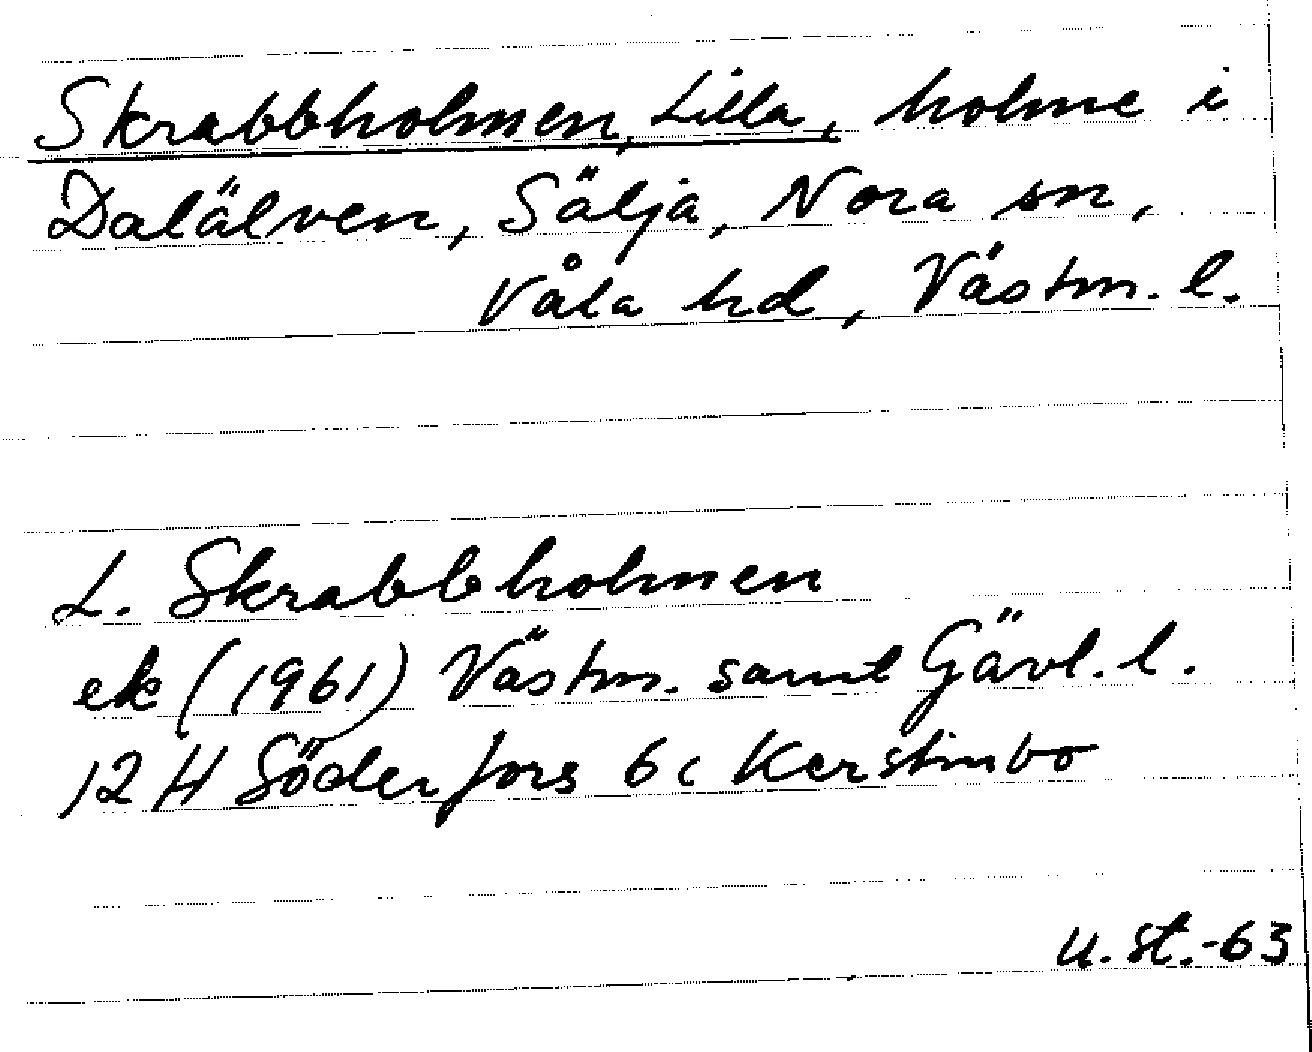 Skrabbholmen, Lilla, holme i
Dalälven, Sälja, Nora sn,
Våla hd, Västm. l.
L. Skrabbholmen
ek (1961) Västm. samt Gävl. l.
12 H Söderfors 6c Kerstinbo
U. St. -63